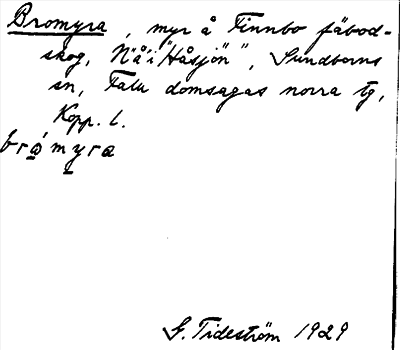 Bromyra, myr å Finnbo fäbod-
skog, N"å"i "Håsjön", Sundborns
sn, Falu domsagas norra tg,
Kopp. l.
bro̱´my̱ra
G. Tideström 1929